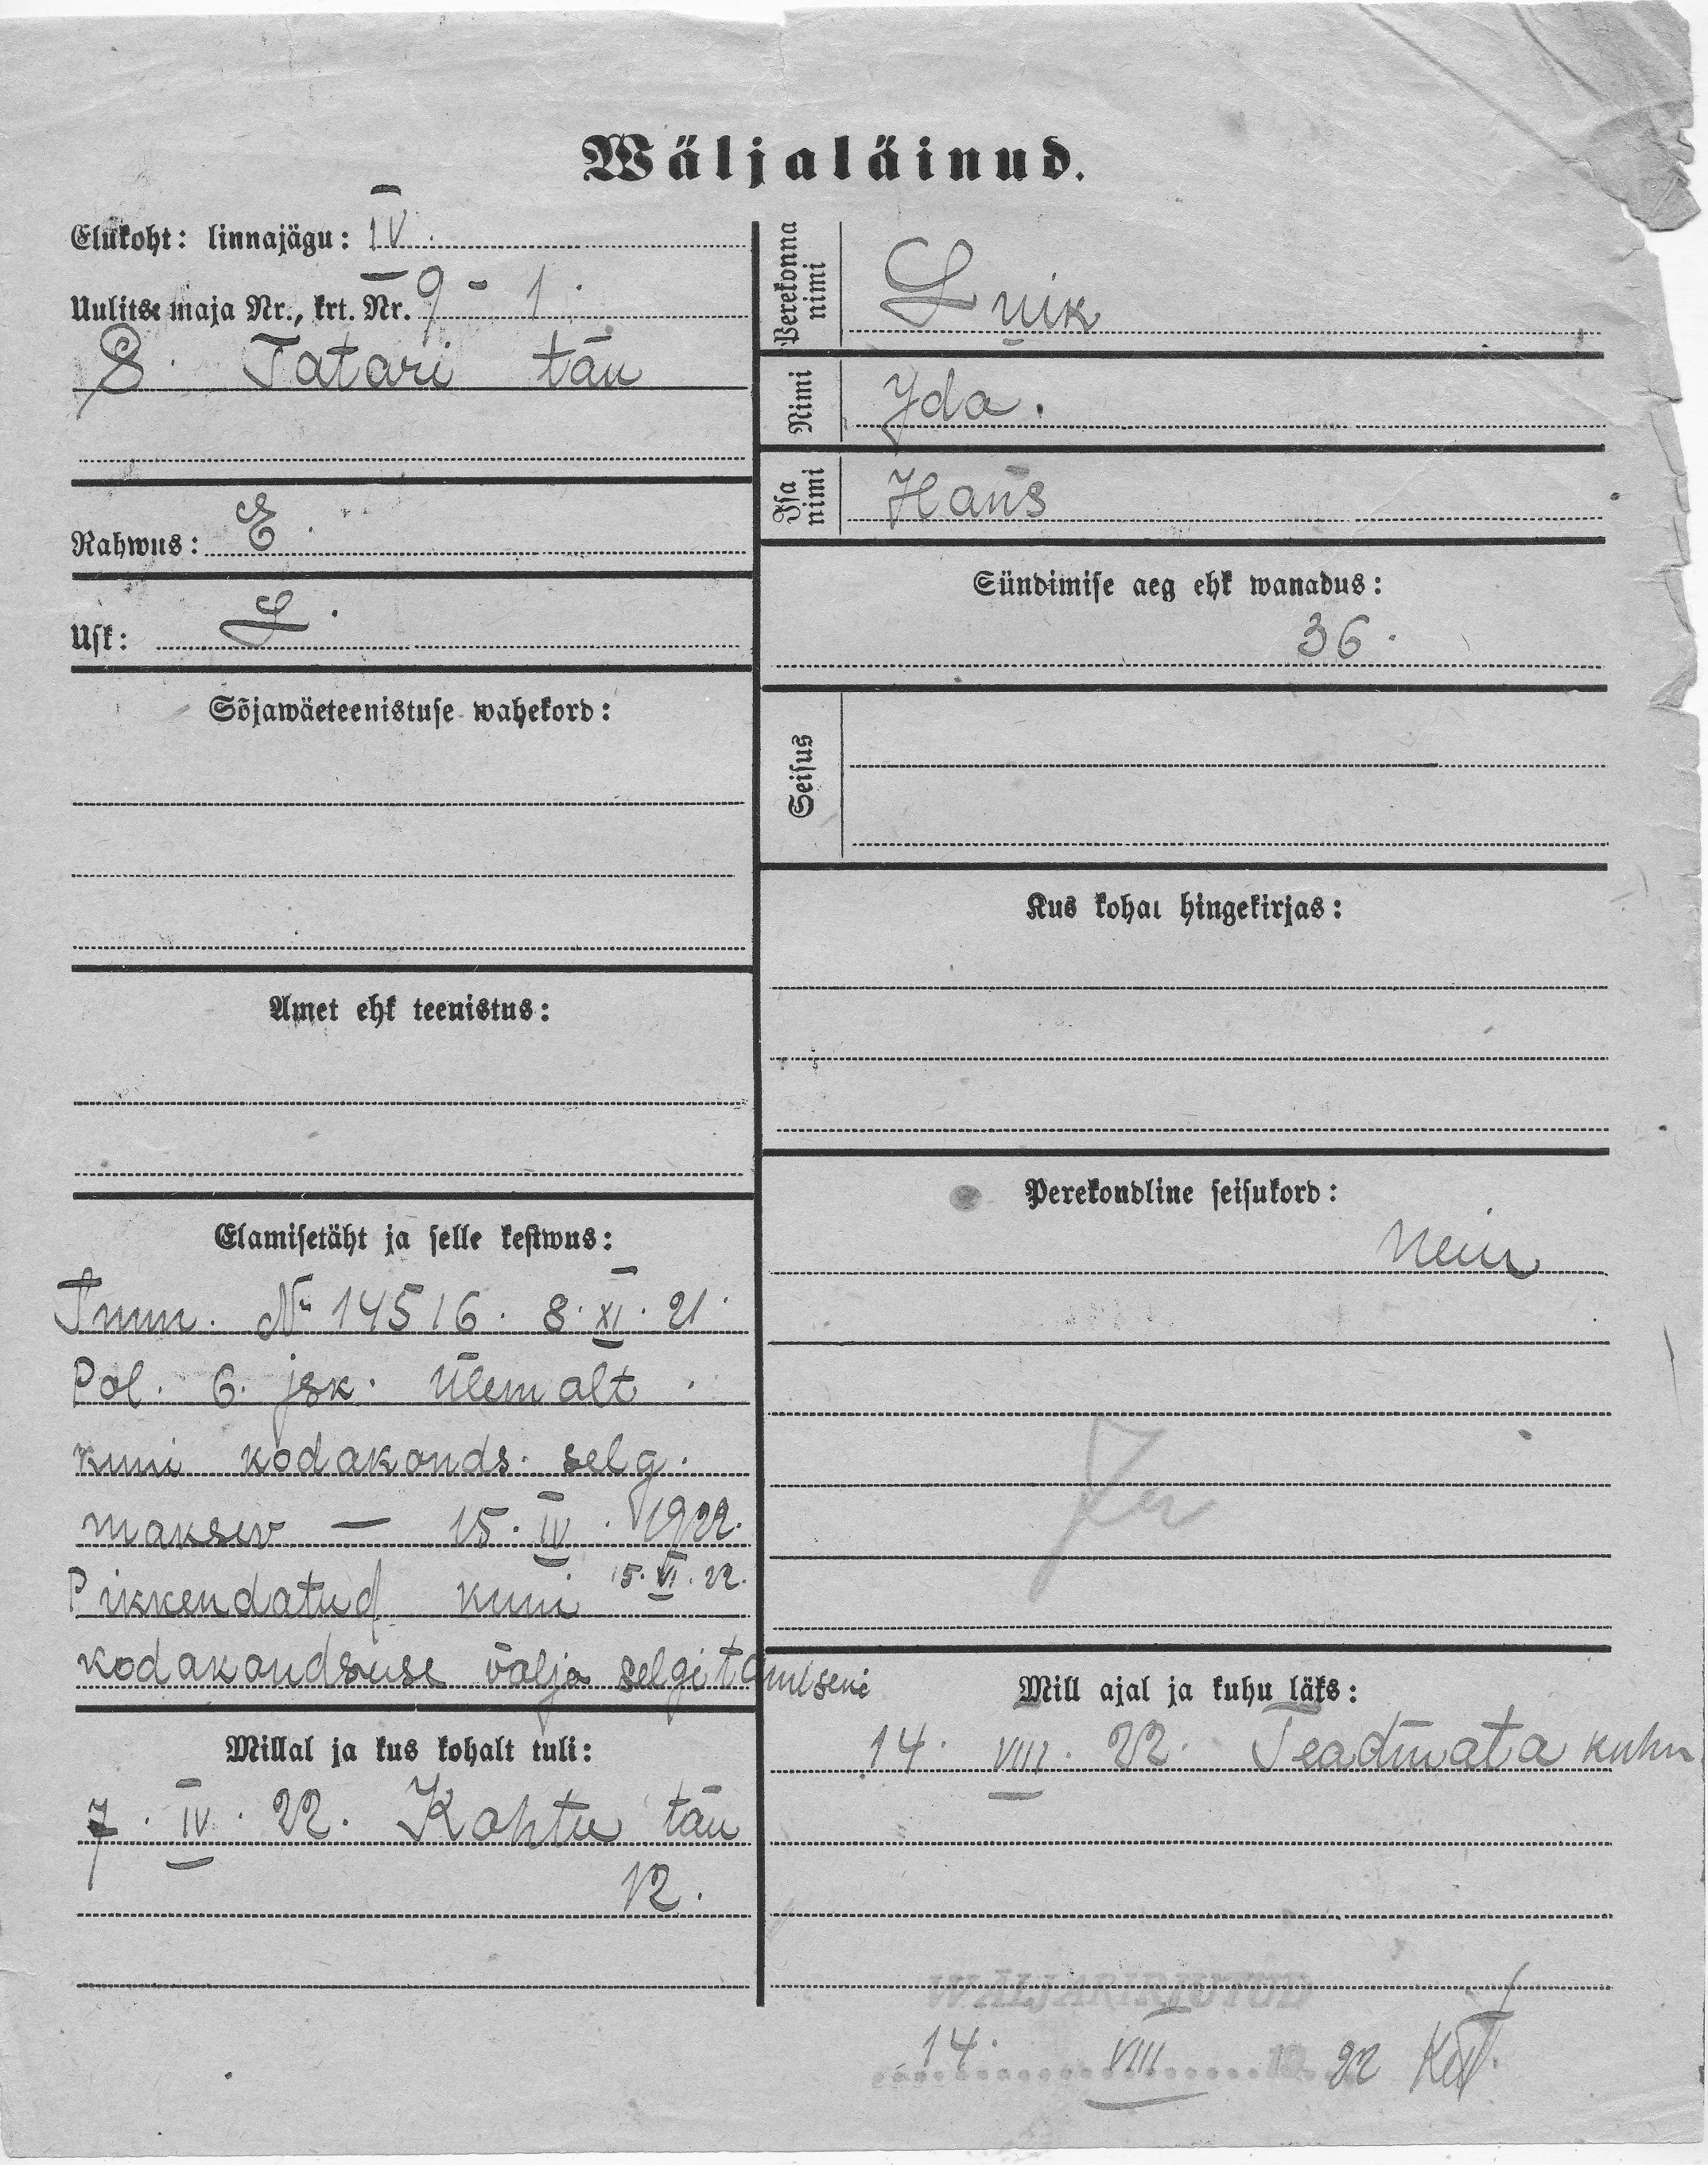 Wäljaläinud.
Elukoht: linnajägu: IV.
Uulitse maja Nr., krt. Nr. 9 - 1.
S. Tatari tän
Rahwus: E.
Usk: L.
Sõjawäeteenistuse wahekord:
Amet ehk teenistus:
Elamisetäht ja selle kestwus:
Tunn. № 14516. 8. XI. 21.
Pol. 6. jsk. ülemalt.
kuni kodakonds. selg.
maksev — 15. IV. 1922.
Pikkendatud kuni 15. VI. 22.
kodakondsuse välja selgitamiseni
Millal ja kus kohalt tuli:
7. IV. 22. Kohtu tän
12.
Perekonna nimi
Luik
Nimi
Ida.
Isa nimi
Hans
Sündimise aeg ehk wanadus:
36.
Seisus
Kus kohal hingekirjas:
Perekondline seisukord:
Mill ajal ja kuhu läks:
14. VIII. 22. Teadmata kuhu
WÄLJAKIRJUTUD
14. VIII 19 22